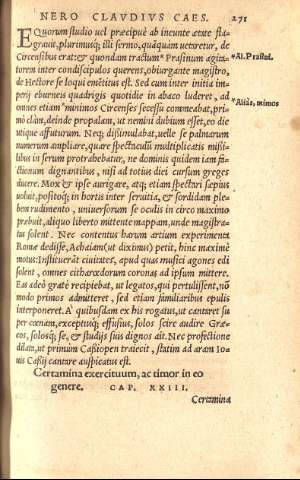 NERO CLAVDIVS CAES. 271
EQuorum studio vel præcipuè ab ineunte ætate fla-
grauit, plurimusq; illi sermo, quãquam vetaretur, de
Circensibus erat: & quondam tractum* Prasinum agita-
torem inter condiscipulos querens, obiurgante magistro,
de Hectore se loqui emẽtitus est. Sed cum inter initia im-
perij eburneis quadrigis quotidie in abaco luderet, ad
omnes etiam* minimos Circenses secessu commeabat, pri-
mò clàm, deinde propalam, ut nemini dubium esset, eo die
utique affuturum. Neq; dissimulabat, uelle se palmarum
numerum ampliare, quare spectaculũ multiplicatis missi-
bus in serum protrahebatur, ne dominis quidem iam fa-
ctionum dignantibus, nisi ad totius diei cursum greges
ducere. Mox & ipse aurigare, atq; etiam spectari sæpius
uoluit, positoq; in hortis inter seruitia, & sordidam ple-
bem rudimento, uniuersorum se oculis in circo maximo
præbuit, aliquo liberto mittente mappam, unde magistra-
tus solent. Nec contentus harum artium experimenta
Romæ dedisse, Achaiam (ut diximus) petit, hinc maximè
motus: Instituerãt ciuitates, apud quas musici agones edi
solent, omnes citharœdorum coronas ad ipsum mittere.
Eas adeò gratè recipiebat, ut legatos, qui pertulissent, nõ
modo primos admitteret, sed etiam familiaribus epulis
interponeret. A quibusdam ex his rogatus, ut cantaret su
per cœnam, exceptusq; effusius, solos scire audire Græ-
cos, solosq; se, & studijs suis dignos ait. Nec profectione
dilata, ut primùm Cassiopen traiecit, statim ad aram Io-
uis Cassij cantare auspicatus est.
*Al. Prasini.
*Aliàs, mimos
Certamina exercituum, ac timor in eo
genere. CAP. XXIII.
Certamina